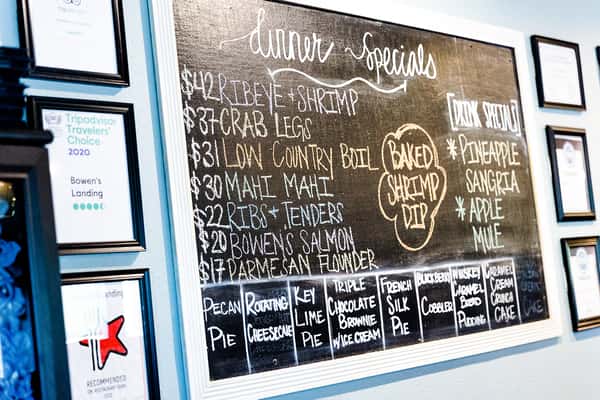 Dinner Specials
$42 RIBEYE + SHRIMP
$37 CRAB LEGS
$31 LOW COUNTRY BOIL
$30 MAHI MAHI
$22 RIBS + TENDERS
$20 BOWEN'S SALMON
$17 PARMESAN FLOUNDER
BAKED
SHRIMP
DIP
DRINK SPECIALS
* PINEAPPLE
SANGRIA
* APPLE
MULE
PECAN
PIE
ROTATING
CHEESECAKE
KEY
LIME
PIE
TRIPLE
CHOCOLATE
BROWNIE
W/ICE CREAM
FRENCH
SILK
PIE
BLACKBERRY
COBBLER
WHISKEY
CARAMEL
BREAD
PUDDING
CARAMEL
CREAM
CRUNCH
CAKE
CAKE
Tripadvisor
Travelers'
Choice
2020
Bowen's
Landing
Landing
RECOMMENDED